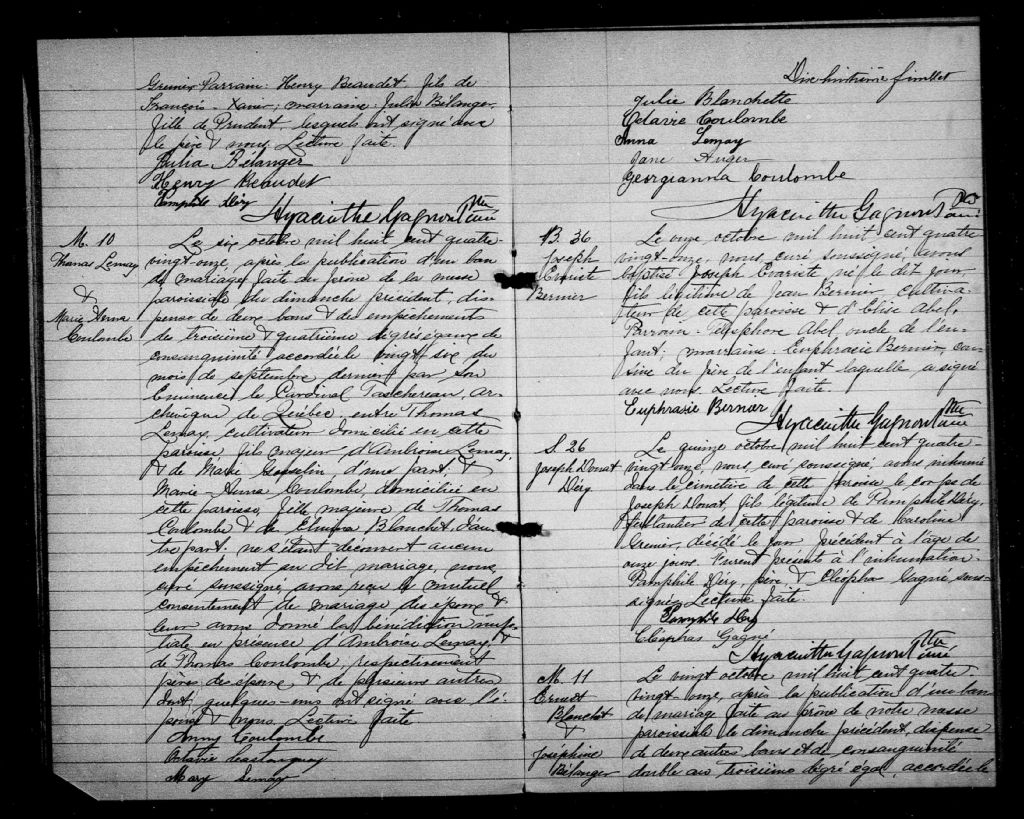 Grenier. Parrain: Henry Beaudet fils de
François-Xavier; marraine: Julia Bélanger,
fille de Prudent, lesquels ont signé avec
le père & nous. Lecture faite.
Julia Bélanger
Henry Beaudet
Déry
Hyacinthe Gagnon Ptre curé
M. 10
Thomas Lemay
&
Marie Anna
Coulombe
Le six octobre mil huit cent quatre-
vingt-onze, après la publication d'un ban
de mariage faite au prône de la messe
paroissiale du dimanche précédent, dis-
pense de deux bans & des empêchements
des troisième & quatrième degrés égaux de
consanguinité accordée le vingt-six du
mois de septembre dernier par Son
Eminence le Cardinal Taschereau, ar-
chevêque de Québec, entre Thomas
Lemay, cultivateur domicilié en cette
paroisse, fils majeur d'Ambroise Lemay,
& de Marie Gosselin d'une part; &
Marie-Anna Coulombe, domiciliée en
cette paroisse, fille majeure de Thomas
Coulombe & de Elmira Blanchet d'au-
tre part. ne s'étant découvert aucun
empêchement au dit mariage, nous,
curé soussigné, avons reçu le mutuel
consentement de mariage des époux &
leur avons donné la bénédiction nup-
tiale en présence d'Ambroise Lemay, &
de Thomas Coulombe, respectivement
pères des époux, & de plusieurs autres
dont quelques-uns ont signé avec l'é-
pouse & nous. Lecture faite
Anny Coulombe
Octavie
Mary Lemay
Dix-huitième feuillet
Julie Blanchette
Octavie Coulombe
Anna Lemay
Jane Auger
Georgianna Coulombe
Hyacinthe Gagnon Ptre curé
B. 36
Joseph
Evariste
Bernier
Le onze octobre mil huit cent quatre
vingt-onze, nous, curé soussigné, avons
baptisé Joseph Evariste né le dit jour
fils légitime de Jean Bernier cultiva-
teur de cette paroisse & d'Elise Abel.
Parrain: Télesphore Abel oncle de l'en-
fant; marraine: Euphrasie Bernier, cou-
sine du père de l'enfant laquelle a signé
avec nous. Lecture faite.
Euphrasie Bernier
Hyacinthe Gagnon Ptre curé
S. 26
Joseph Donat
Déry
Le quinze octobre mil huit cent quatre-
vingt onze, nous, curé soussigné, avons inhumé
dans le cimetière de cette paroisse le corps de
Joseph Donat, fils légitime de Pamphile Déry,
ferblantier de cette paroisse & de Caroline
Grenier, décédé le jour précédent à l'âge de
onze jours. Furent présents à l'inhumation
Pamphile Déry, père, & Cléophas Gagné sous-
signés. Lecture faite.
Déry
Cléophas Gagné
Hyacinthe Gagnon Ptre curé
M. 11
Ernest
Blanchet
&
Joséphine
Bélanger
Le vingt octobre mil huit cent quatre
vingt-onze, après la publication d'un ban
de mariage faite au prône de notre messe
paroissiale le dimanche précédent, dispense
de deux autres bans et de consanguinité
double au troisième degré égal, accordée le